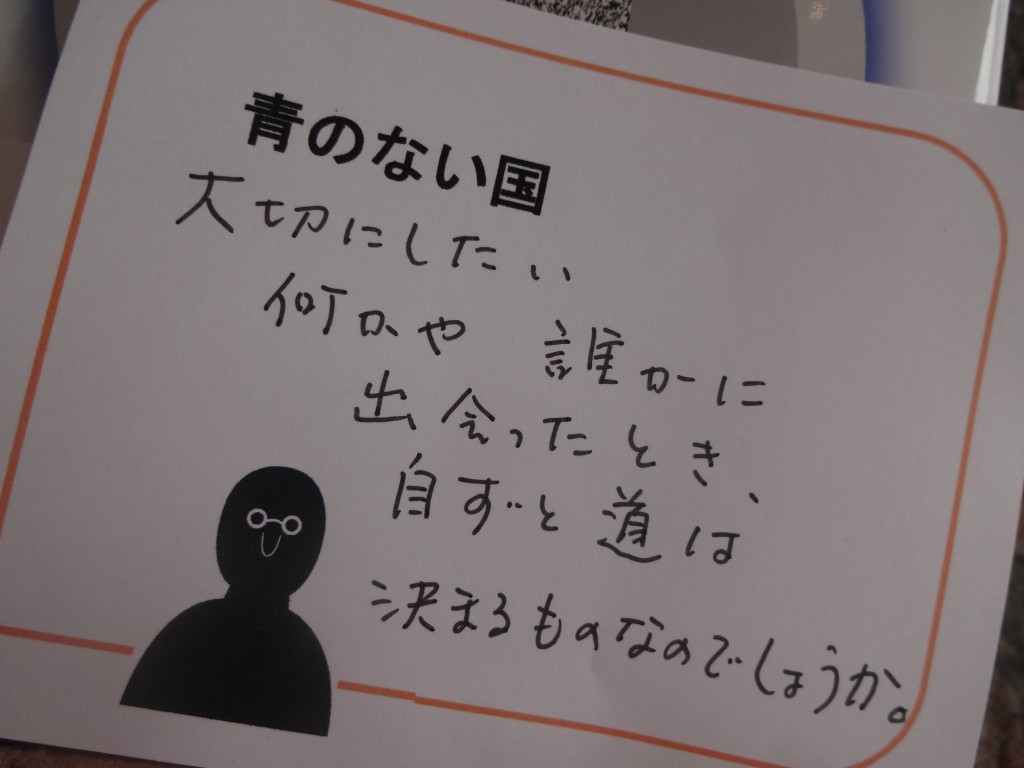 青のない国
大切にしたい
何かや 誰かに
出会ったとき、
自ずと道は
決まるものなのでしょうか。